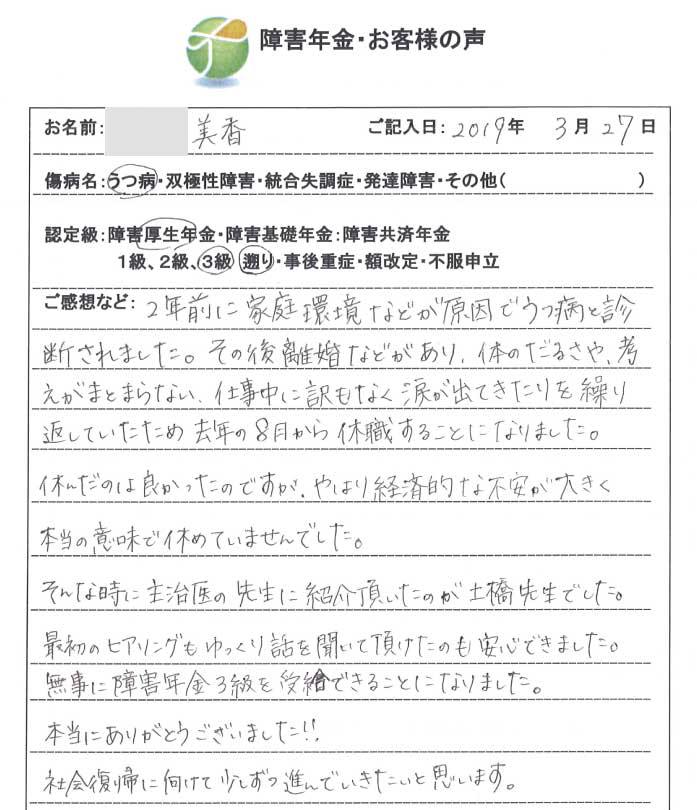 障害年金・お客様の声
お名前: 美香 ご記入日: 2019年 3月27日
傷病名:うつ病・双極性障害・統合失調症・発達障害・その他( )
認定級:障害厚生年金・障害基礎年金:障害共済年金
1級、2級、3級 遡り・事後重症・額改定・不服申立
ご感想など: 2年前に家庭環境などが原因でうつ病と診
断されました。その後離婚などがあり、体のだるさや、考
えがまとまらない、仕事中に訳もなく涙が出てきたりを繰り
返していたため去年の8月から休職することになりました。
休んだのは良かったのですが、やはり経済的な不安が大きく
本当の意味で休めていませんでした。
そんな時に主治医の先生に紹介頂いたのが土橋先生でした。
最初のヒアリングもゆっくり話を聞いて頂けたのも安心できました。
無事に障害年金3級を受給できることになりました。
本当にありがとうございました!!
社会復帰に向けて少しずつ進んでいきたいと思います。